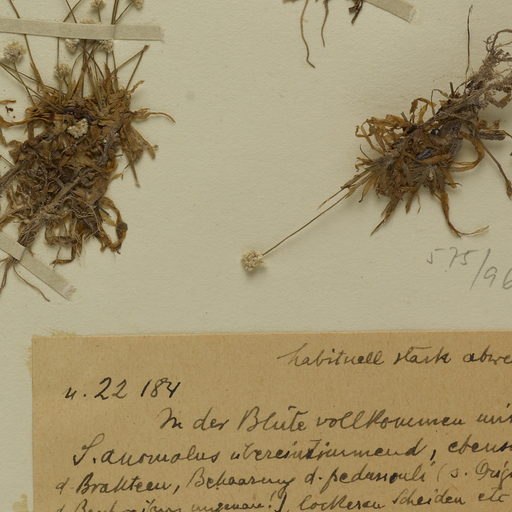 575/96
habituell stark abwe
n. 22 184
In der Blüte vollkommen mit
S. anomalus übereinstimmend, ebens
d. Brakteen, Behaarung d. pedunculi (s. Orig
d. ungenau!), lockeren Scheiden etc